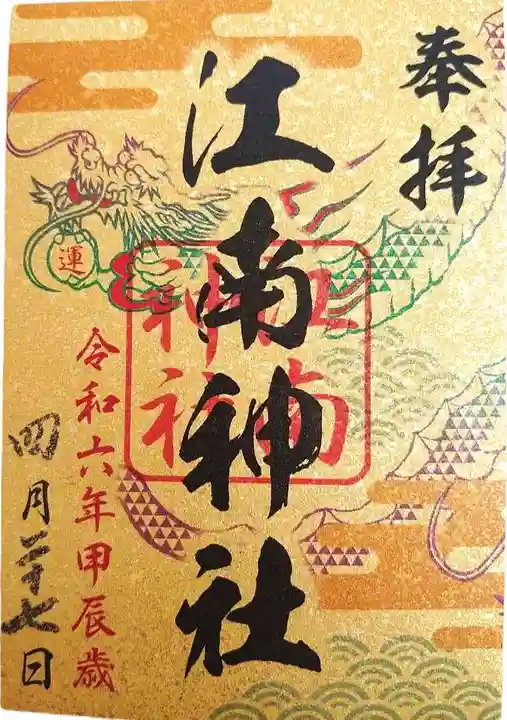 奉拝
江南神社
江南
神社
運
令和六年甲辰歳
四月二十七日